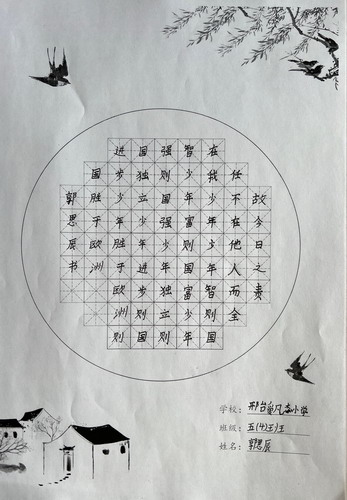 故今日之责
任不在他人而全
在我少年少年智则国
智少年富则国富少年
强则国强少年独立则
国独立少年进步则国
进步少年胜于欧洲则
国胜于欧洲
郭思辰书
学校: 邢台 小学
班级: 五(4)
姓名: 郭思辰